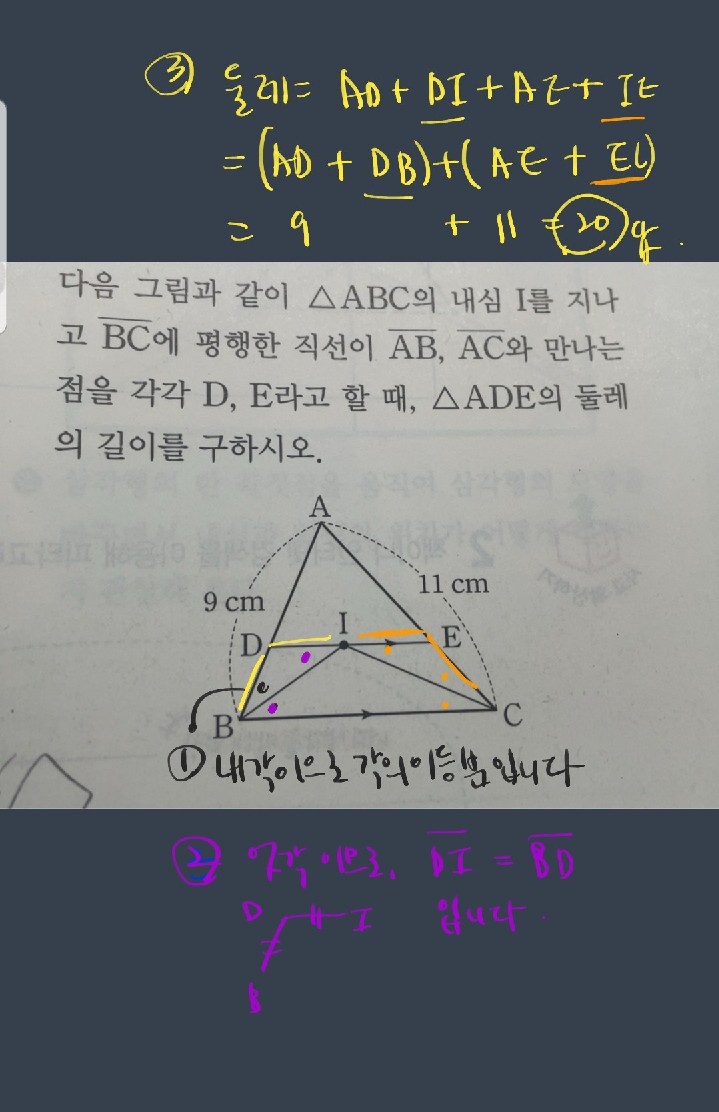 ③ 둘레= AD + DI + AE + IE
= (AD + DB)+( AE + EC)
= 9 + 11 = 20
다음 그림과 같이 △ABC의 내심 I를 지나
고 BC에 평행한 직선이 AB, AC와 만나는
점을 각각 D, E라고 할 때, △ADE의 둘레
의 길이를 구하시오.
A
9 cm
11 cm
D
I
E
B
C
①
입니다
② 엇각이므로, DI = BD
입니다.
D
I
B